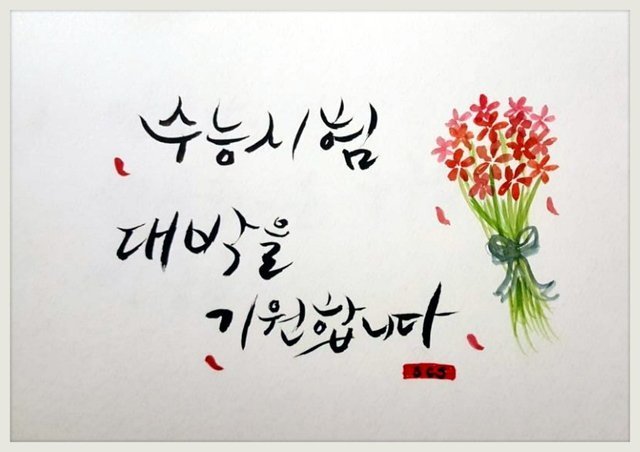 수능시험
대박을
기원합니다